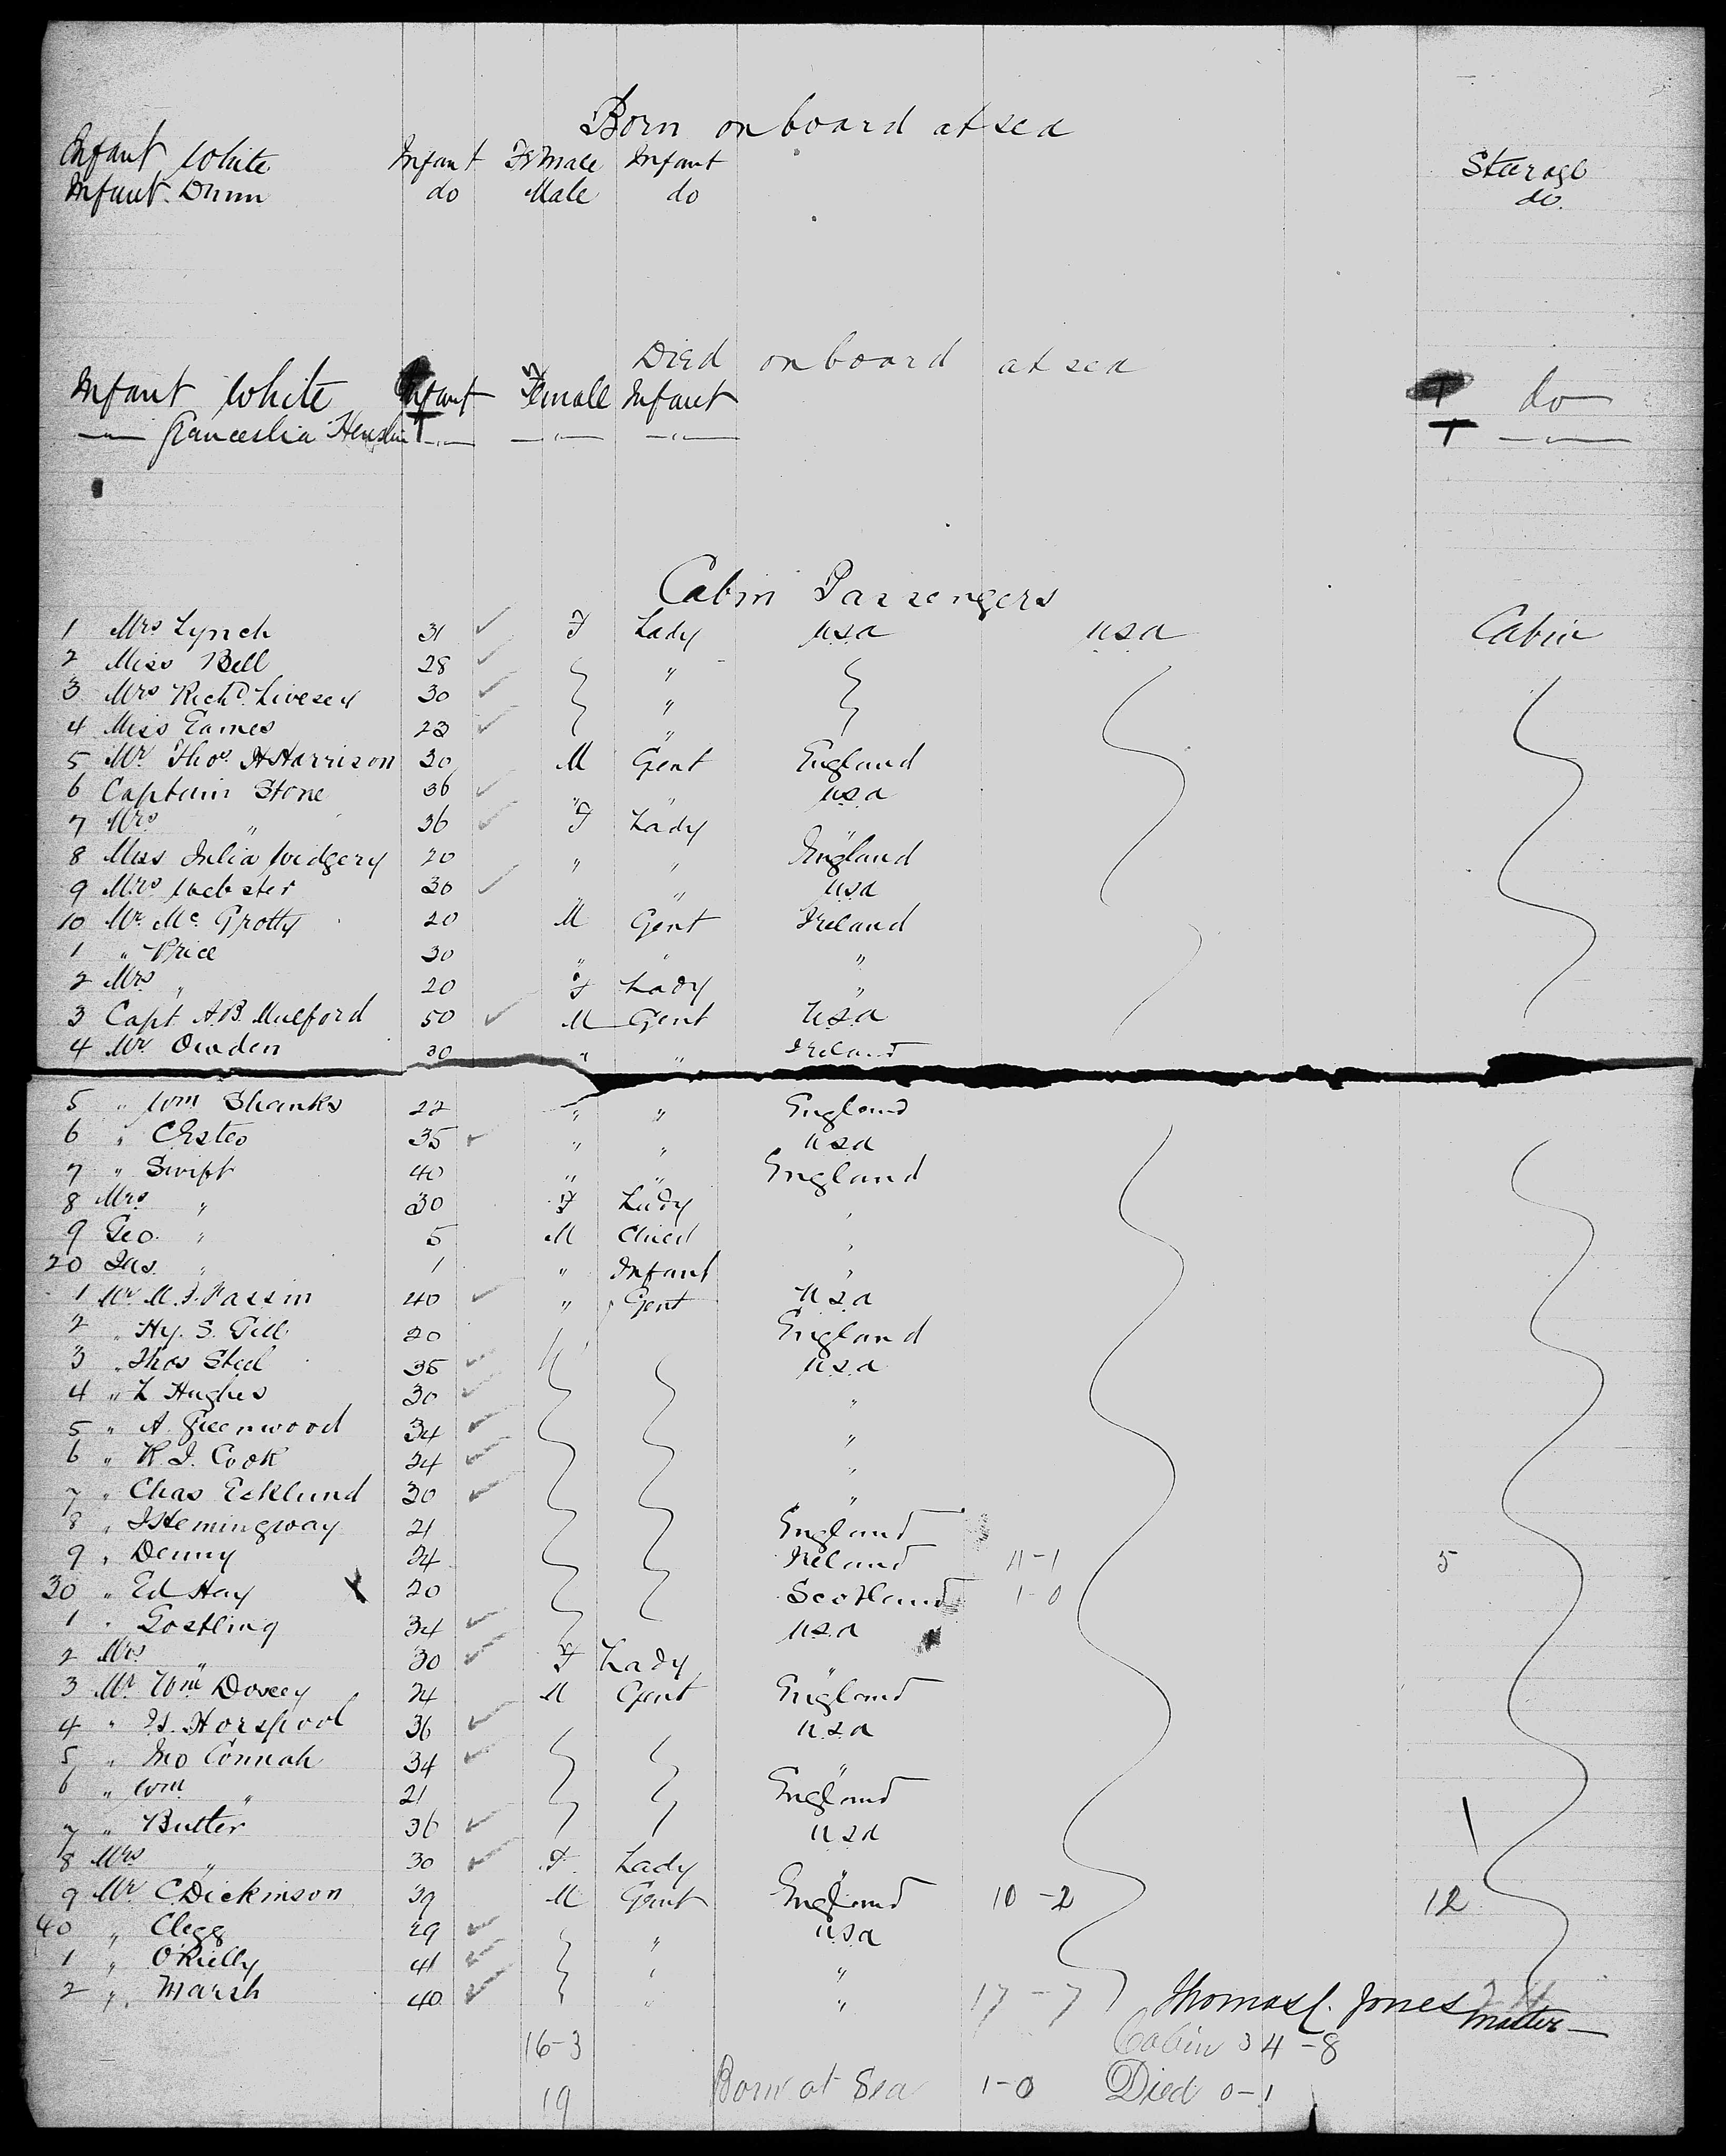 Born on board at sea
Infant White Infant Female Infant Steerage
Infant Dunn do Male do do.
Died on board at sea
Infant White Infant Female Infant T do
—"— Henslin T —"— —"— —"— T —"—
Cabin Passengers
1 Mrs Lynch 31 ✓ F Lady U.S.A U.S.A Cabin
2 Miss Bell 28 ✓ "
3 Mrs Richd. Livesey 30 ✓ "
4 Miss Eames 23 ✓ "
5 Mr Thos. H Harrison 30 M Gent England
6 Captain Stone 36 ✓ " " U.S.A
7 Mrs " 36 ✓ F Lady "
8 Miss Julia Widgery 20 " " England
9 Mrs Webster 30 ✓ " " USA
10 Mr. Mc. Grotty 20 M Gent Ireland
1 " Price 30 " " "
2 Mrs " 20 F Lady "
3 Capt A.B. Mulford 50 ✓ M Gent U.S.A
4 Mr Owden 30 " " Ireland
5 " Wm Shanks 22 " " England
6 " Estes 35 ✓ " " USA
7 " Swift 40 " " England
8 Mrs " 30 F Lady "
9 Geo. " 5 M Child "
20 Jas. " 1 " Infant "
1 Mr M. J. Fassin 40 ✓ " Gent U.S.A
2 " Hy. S. Gill 20 England
3 " Thos Steel 35 ✓ U.S.A
4 " L Hughes 30 ✓ "
5 " A. Greenwood 34 ✓ "
6 " R. J. Cook 24 ✓ "
7 " Chas Ecklund 30 ✓ "
8 " J Hemingway 21 England
9 " Denny 24 Ireland 11-1 5
30 " Ed Hay X 20 Scotland 1-0
1 " Gostling 34 ✓ U.S.A
2 Mrs " 30 ✓ F Lady "
3 Mr Wm Dovey 24 M Gent England
4 " H. Horspool 36 ✓ U.S.A
5 " Jno Connah 34 ✓ "
6 " Wm " 21 England
7 " Butler 36 ✓ USA
8 Mrs " 30 ✓ F. Lady "
9 Mr C Dickinson 39 M Gent England 10-2 12
40 " Clegg 29 ✓ " U.S.A
1 " O'Rielly 41 ✓ " "
2 " Marsh 40 ✓ " " 17-7 Thomas C. Jones 24
Master
16-3 Cabin 34-8
19 Born at Sea 1-0 Died 0-1